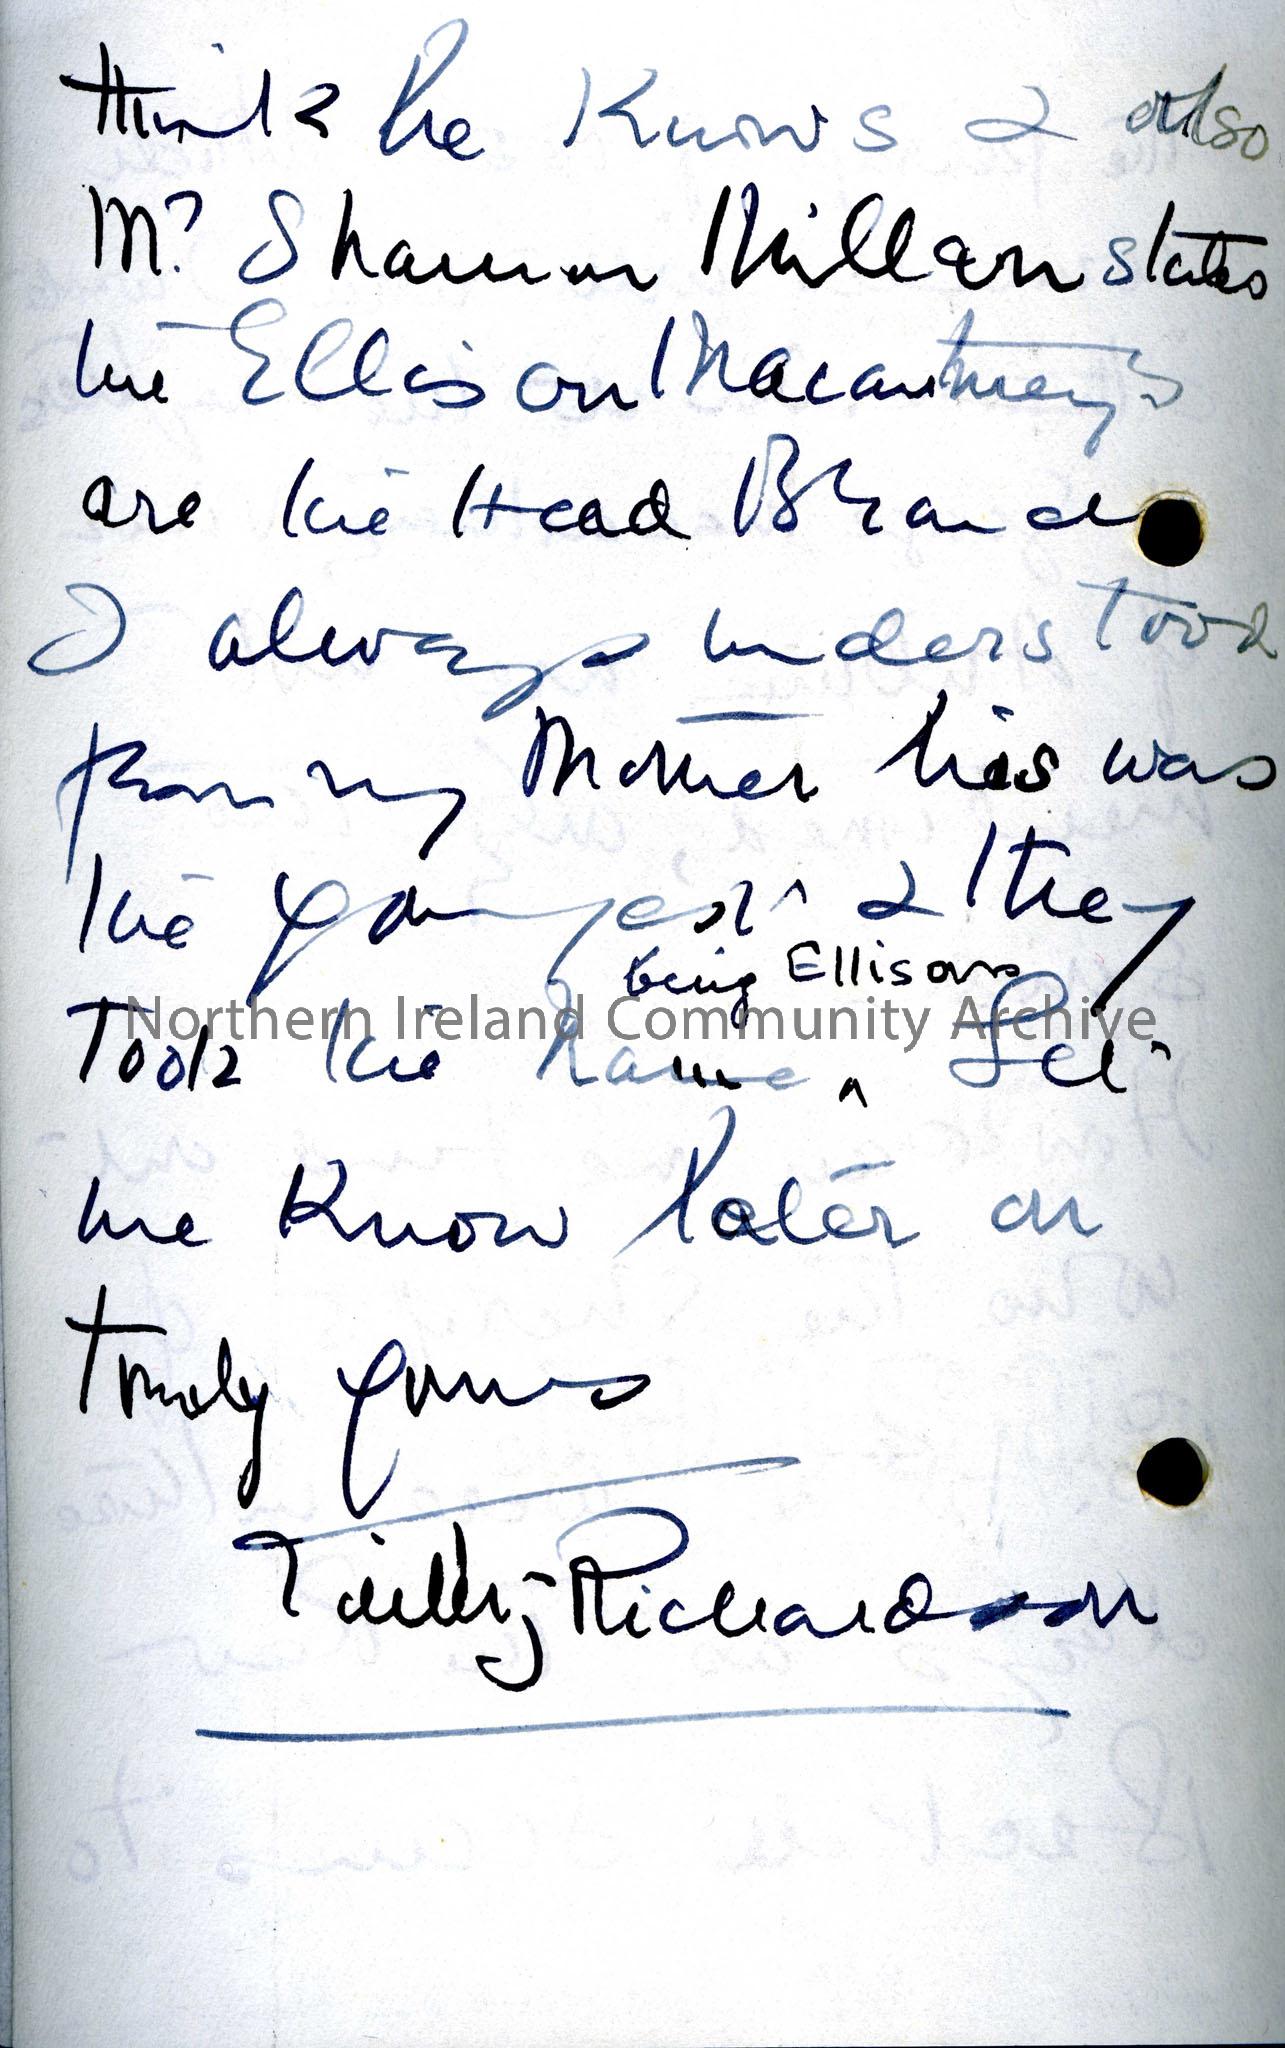 think he knows & also
Mr Shannon Millan states
the Ellison Macartneys
are the Head Branch
I always understood
from my Mother this was
the youngest & they
being Ellisons
Took the name ^ Let
me Know later on
Truly yours
Richardson
Northern Ireland Community Archive